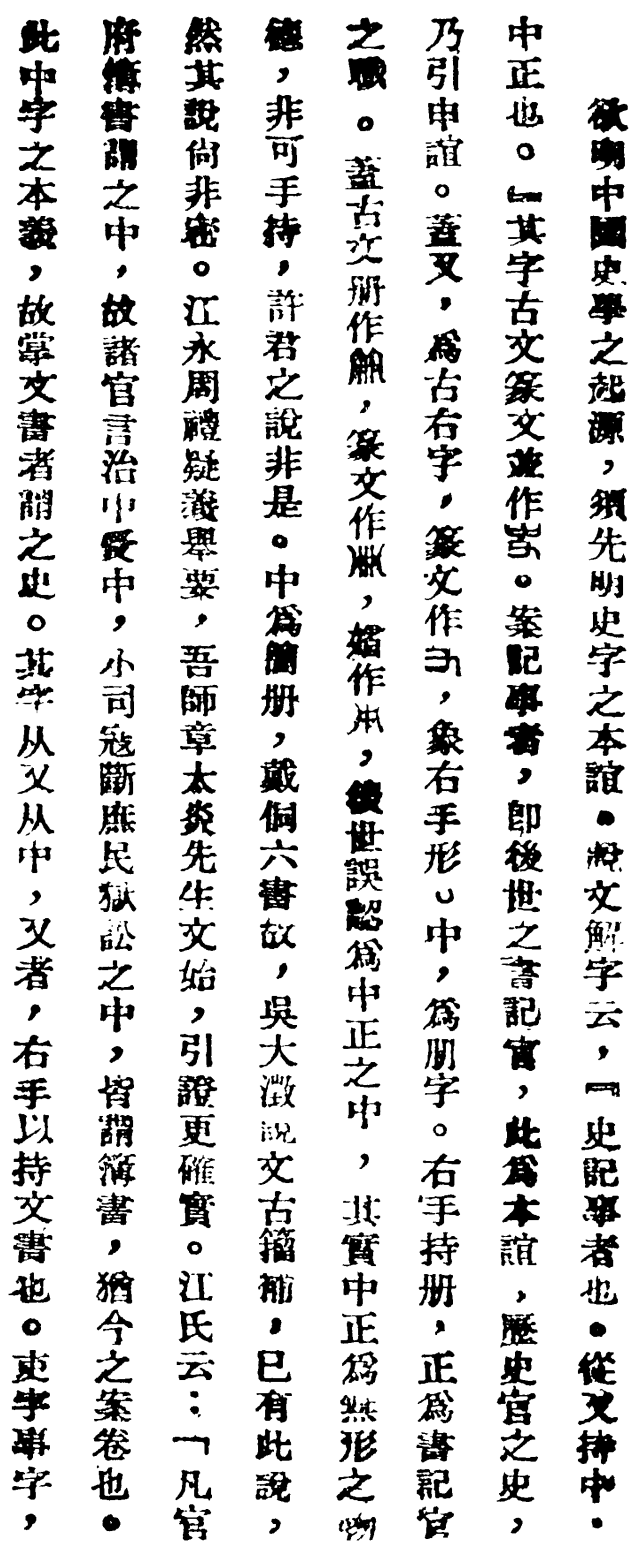 欲明中國史學之起源，須先明史字之本誼。說文解字云，『史記事者也。從又持中。
中正也。』其字古文篆文並作。案記事者，卽後世之書記官，此爲本誼，歷史官之史，
乃引申誼。蓋又，爲古右字，篆文作，象右手形。中，爲册字。右手持册，正爲書記官
之職。蓋古文册作，篆文作，媘作，後世誤認爲中正之中，其實中正爲無形之物
德，非可手持，許君之說非是。中爲簡册，戴侗六書故，吳大澂說文古籀補，已有此說，
然其說尙非密。江永周禮疑義舉要，吾師章太炎先生文始，引證更確實。江氏云：「凡官
府簿書謂之中，故諸官言治中受中，小司寇斷庶民獄訟之中，皆謂簿書，猶今之案卷也。
此中字之本義，故掌文書者謂之史。其字从又从中，又者，右手以持文書也。吏字事字，